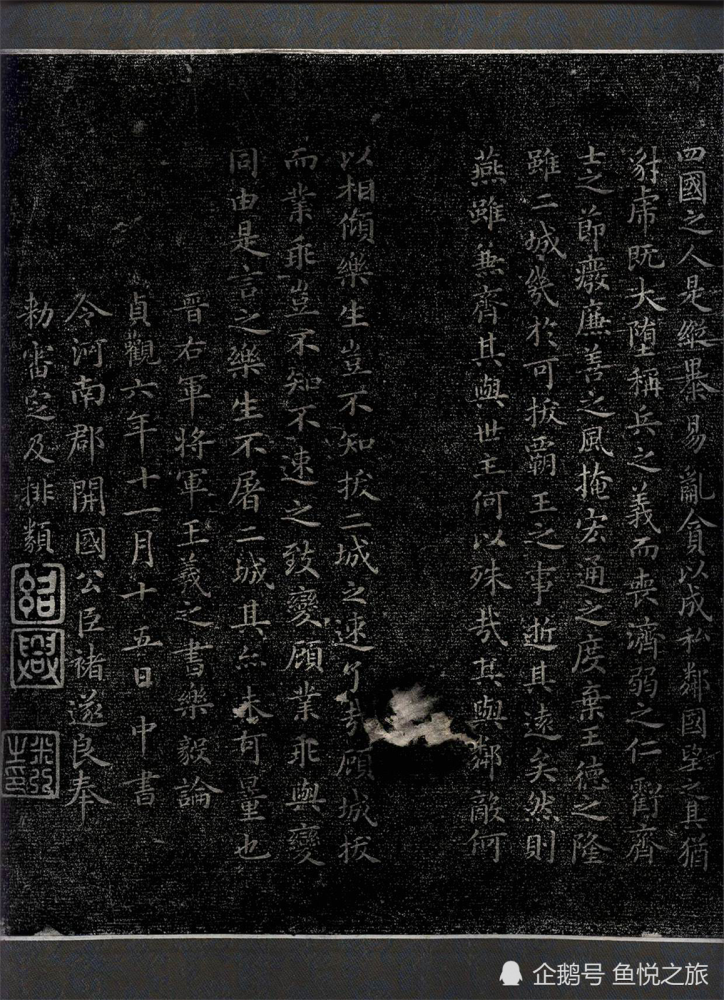 四國之人是縱暴易亂貪以成私鄰國望之其猶
豺虎既大墮稱兵之義而喪濟弱之仁虧齊
士之節廢廉善之風掩宏通之度棄王德之隆
雖二城幾於可拔霸王之事逝其遠矣然則
燕雖兼齊其與世主何以殊哉其與鄰敵何
以相傾樂生豈不知拔二城之速了哉顧城拔
而業乖豈不知不速之致變顧業乖與變
同由是言之樂生不屠二城其亦未可量也
晉右軍將軍王羲之書樂毅論
貞觀六年十一月十五日中書
令河南郡開國公臣褚遂良奉
勅審定及排類
紹興
米芾之印
企鹅号 鱼悦之旅